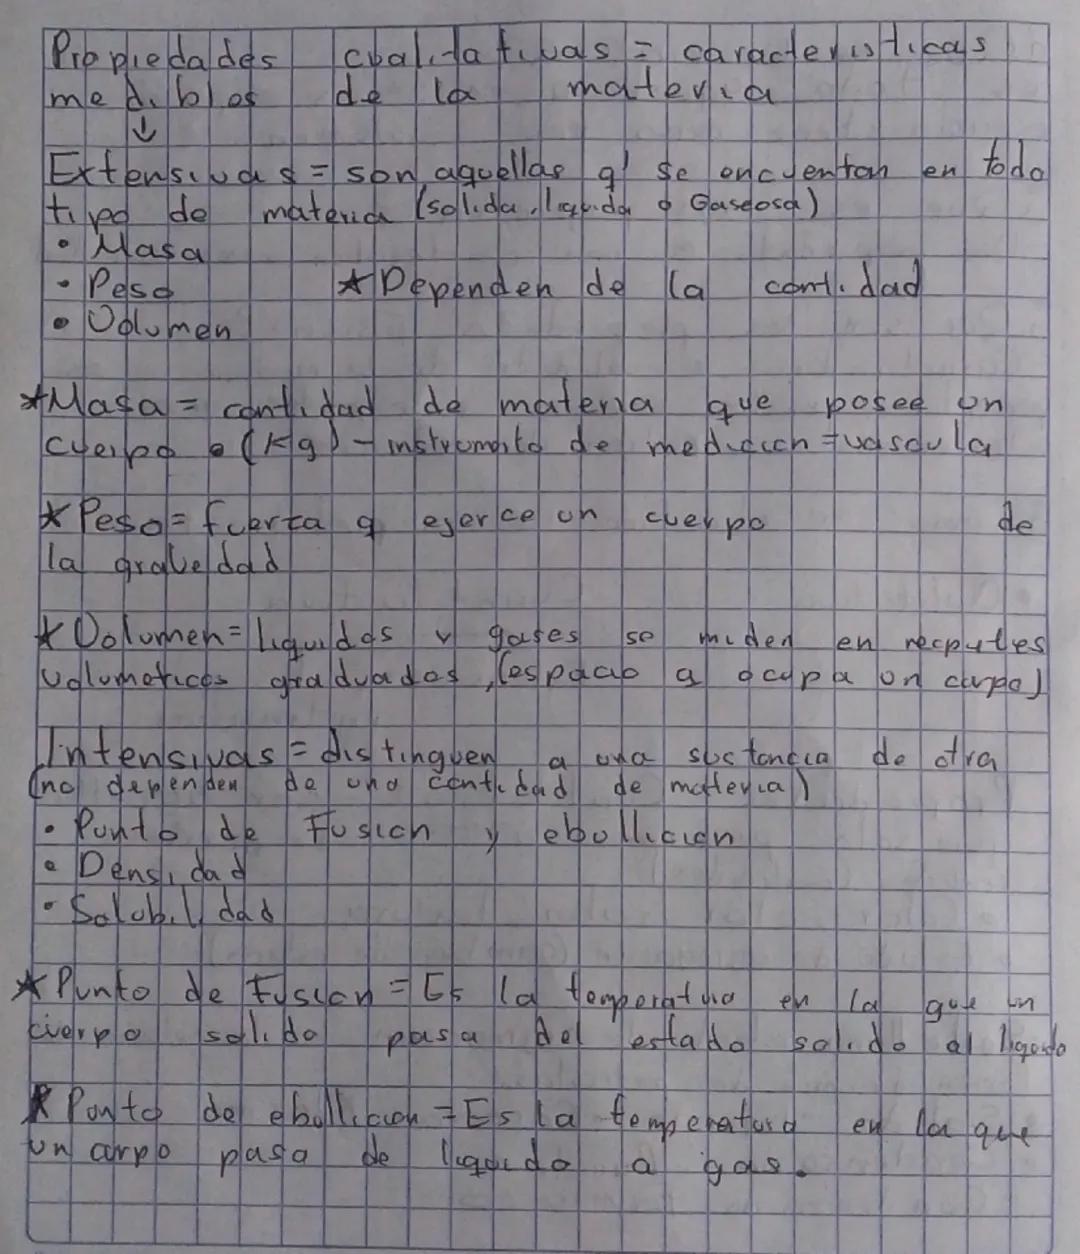 Propiedades cualitativas = caracteristicas
medibles de la materia
↓
Extensivas = son aquellas q' se encuentan en todo
tipo de materia (solida, liquida o Gaseosa)
• Masa
• Peso ★ Dependen de la cantidad
• Volumen
★ Masa = cantidad de materia que posee un
cuerpo • (Kg) - instrumento de medicion = vascula
★ Peso = fuerza q ejerce un cuerpo de
la gravedad
★ Volumen = liquidos y gases se miden en recputes
volumetricos graduados, (espacio q ocupa un curpo)
Intensivas = distinguen a una sustancia de otra
(no dependen de una cantidad de materia)
• Punto de Fusion y ebullicion
• Densidad
• Solubilidad
★ Punto de Fusion = Es la temperatura en la que un
cierpo solido pasa del estado solido al liquido
★ Punto de ebullicion = Es la temperatura en la que
un curpo pasa de liquido a gas.